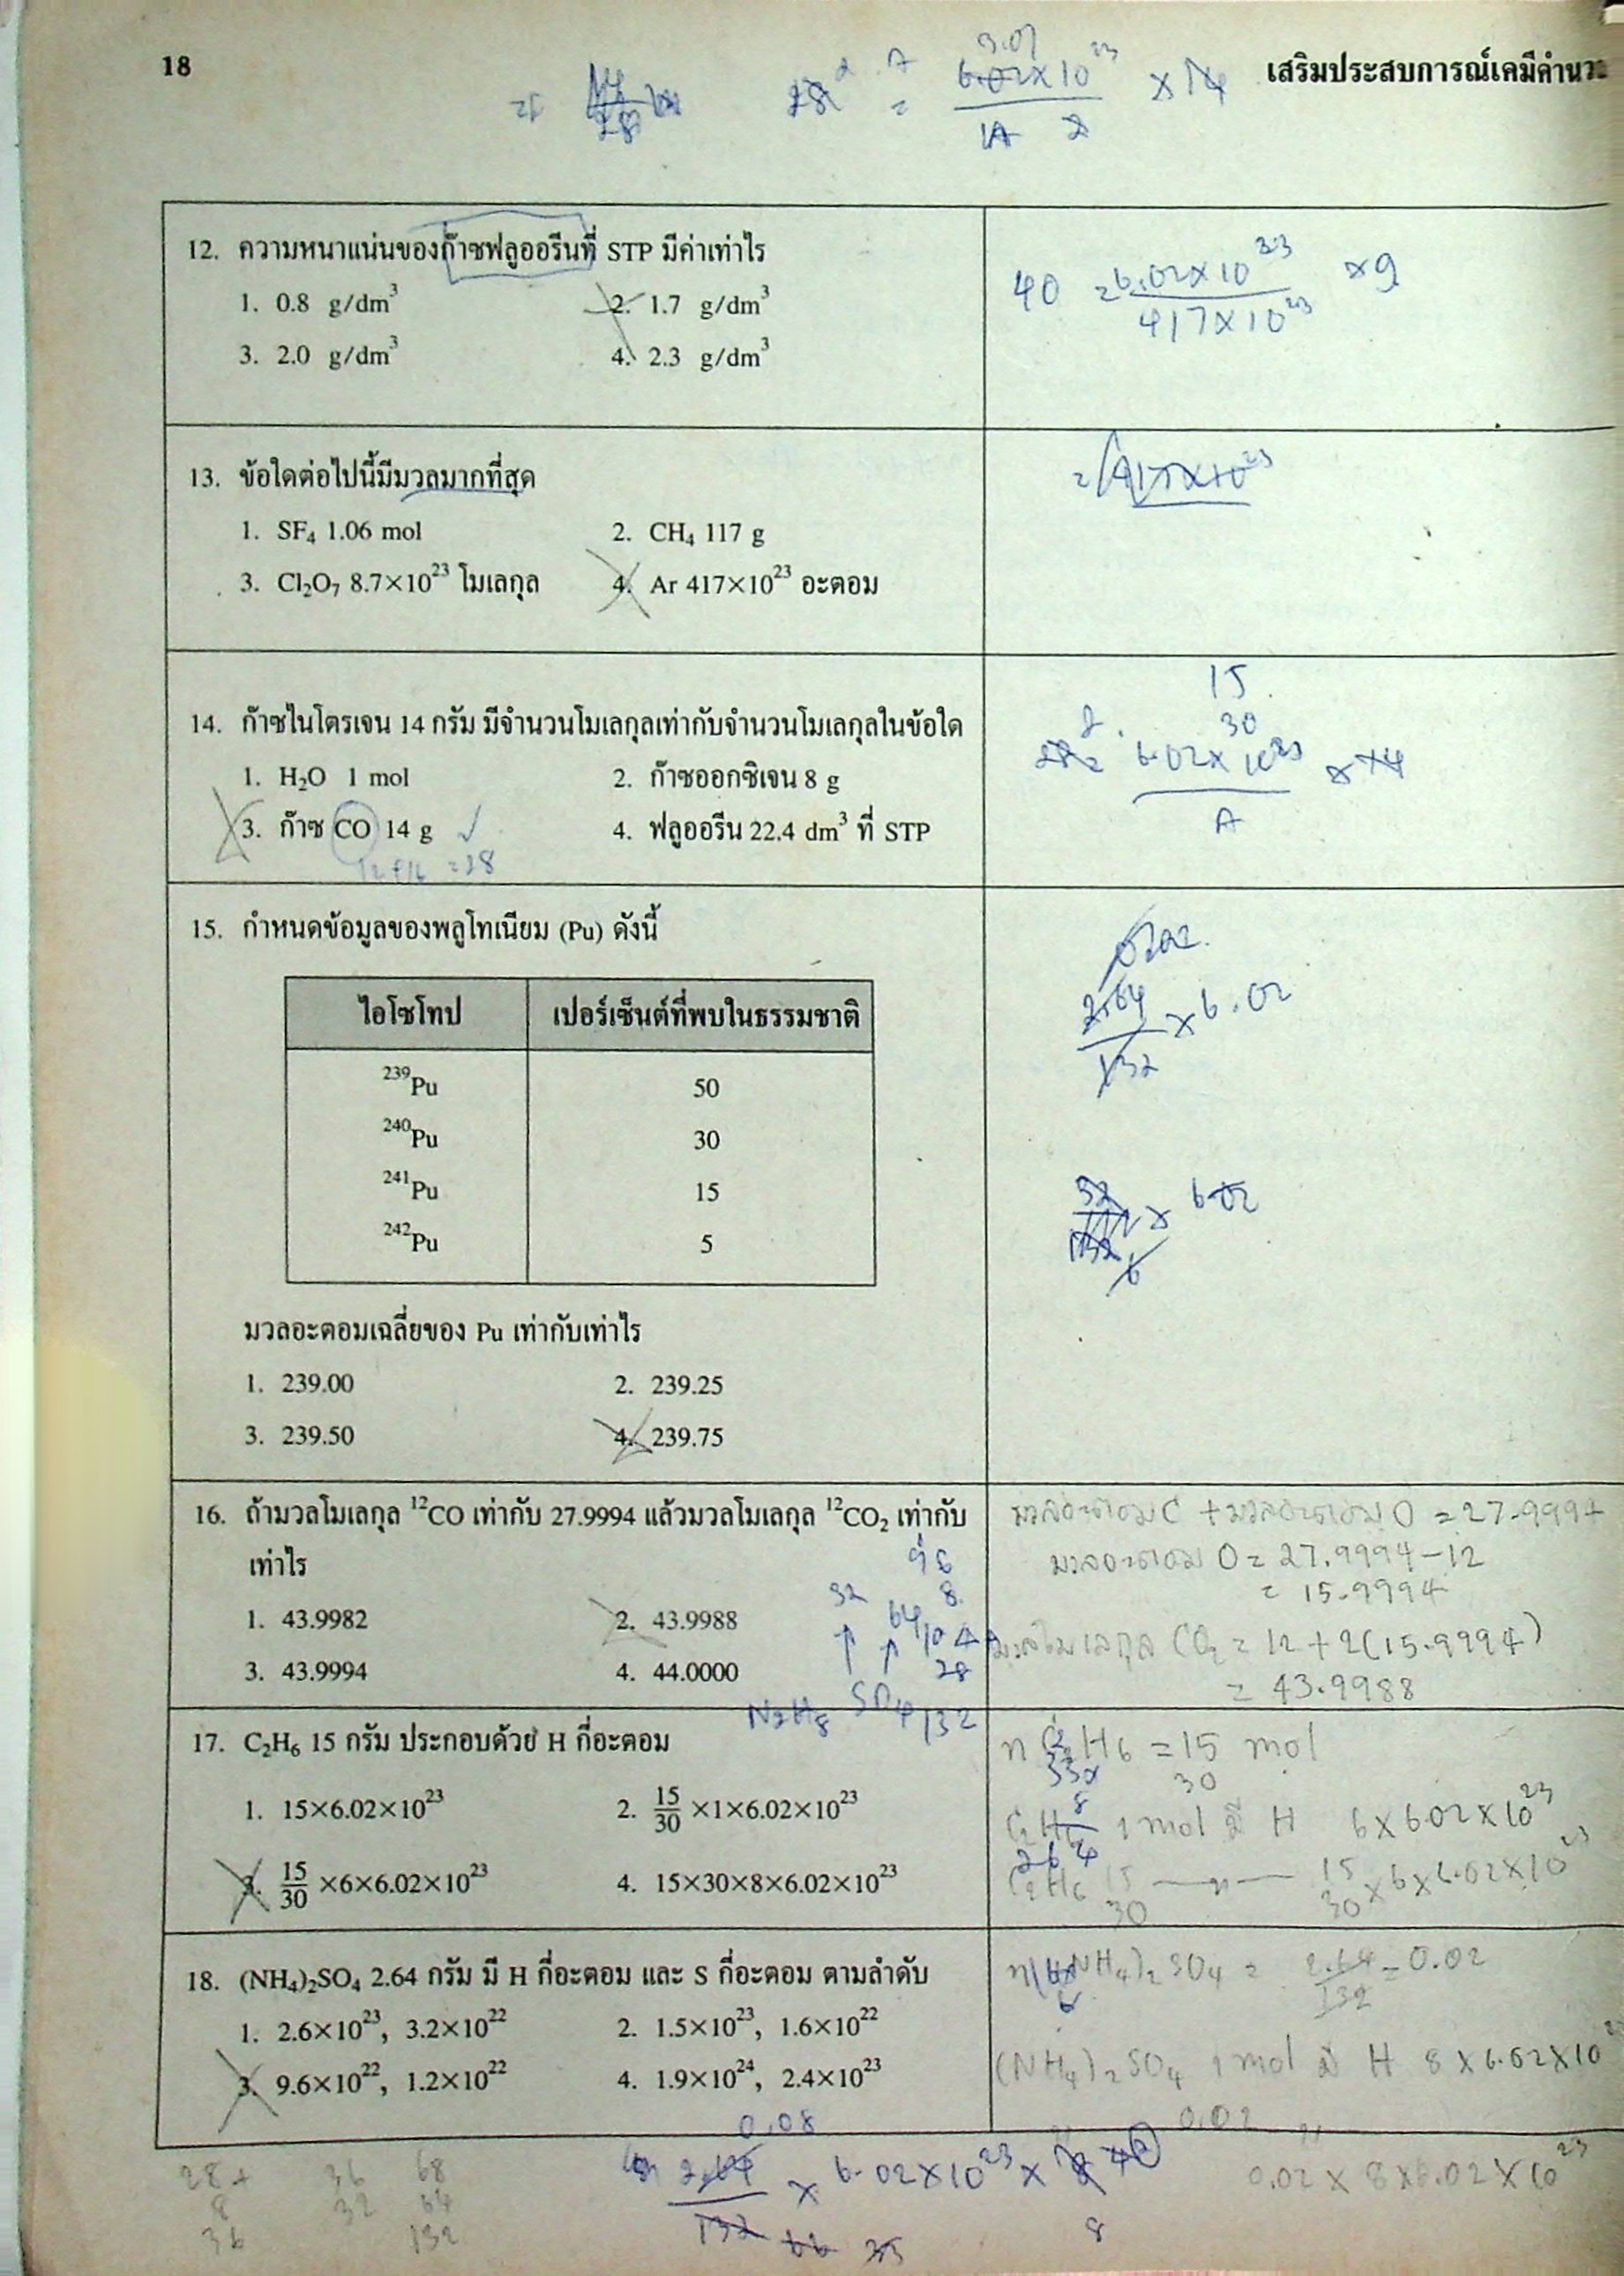 18
เสริมประสบการณ์เคมีคำนว
12. ความหนาแน่นของก๊าซฟลูออรีนที่ STP มีค่าเท่าไร
1. 0.8 g/dm³ 2. 1.7 g/dm³
3. 2.0 g/dm³ 4. 2.3 g/dm³
13. ข้อใดต่อไปนี้มีมวลมากที่สุด
1. SF₄ 1.06 mol 2. CH₄ 117 g
3. Cl₂O₇ 8.7×10²³ โมเลกุล 4. Ar 417×10²³ อะตอม
14. ก๊าซไนโตรเจน 14 กรัม มีจำนวนโมเลกุลเท่ากับจำนวนโมเลกุลในข้อใด
1. H₂O 1 mol 2. ก๊าซออกซิเจน 8 g
3. ก๊าซ CO 14 g 4. ฟลูออรีน 22.4 dm³ ที่ STP
15. กำหนดข้อมูลของพลูโทเนียม (Pu) ดังนี้
ไอโซโทป เปอร์เซ็นต์ที่พบในธรรมชาติ
²³⁹Pu 50
²⁴⁰Pu 30
²⁴¹Pu 15
²⁴²Pu 5
มวลอะตอมเฉลี่ยของ Pu เท่ากับเท่าไร
1. 239.00 2. 239.25
3. 239.50 4. 239.75
16. ถ้ามวลโมเลกุล ¹²CO เท่ากับ 27.9994 แล้วมวลโมเลกุล ¹²CO₂ เท่ากับ
เท่าไร
1. 43.9982 2. 43.9988
3. 43.9994 4. 44.0000
มวลอะตอม C + มวลอะตอม O = 27.9994
มวลอะตอม O = 27.9994 - 12
= 15.9994
มวลโมเลกุล CO₂ = 12 + 2(15.9994)
= 43.9988
17. C₂H₆ 15 กรัม ประกอบด้วย H กี่อะตอม
1. 15×6.02×10²³ 2. 15/30 ×1×6.02×10²³
3. 15/30 ×6×6.02×10²³ 4. 15×30×8×6.02×10²³
1 mol มี H 6×6.02×10²³
15/30 ×6×6.02×10²³
18. (NH₄)₂SO₄ 2.64 กรัม มี H กี่อะตอม และ S กี่อะตอม ตามลำดับ
1. 2.6×10²³, 3.2×10²² 2. 1.5×10²³, 1.6×10²²
3. 9.6×10²², 1.2×10²² 4. 1.9×10²⁴, 2.4×10²³
2.64/132 = 0.02
(NH₄)₂SO₄ 1 mol มี H 8×6.02×10
0.02
0.02 × 8×6.02×10²³
28 + 36 68
8 32 64
36 132